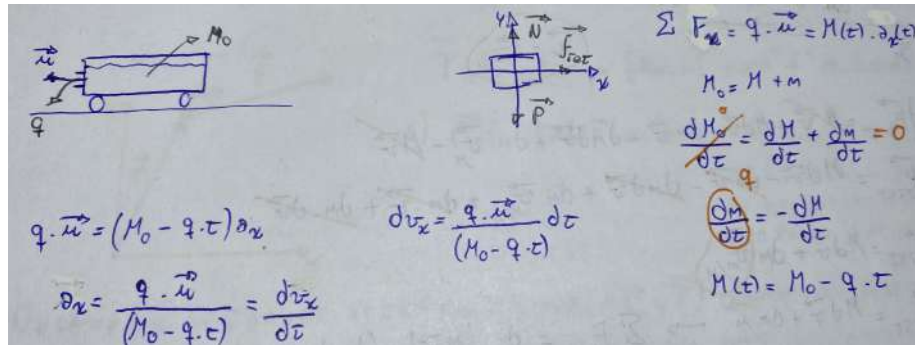 M₀
u⃗
q
y N⃗
f⃗rot
x
P⃗
Σ Fₓ = q · u⃗ = M(t) · aₓ(t)
M₀ = M + m
dM₀/dt = dM/dt + dm/dt = 0
0
q
dm/dt = - dM/dt
M(t) = M₀ - q · t
q · u⃗ = (M₀ - q · t) aₓ
aₓ = q · u⃗ / (M₀ - q · t) = dvₓ/dt
dvₓ = q · u⃗ / (M₀ - q · t) dt